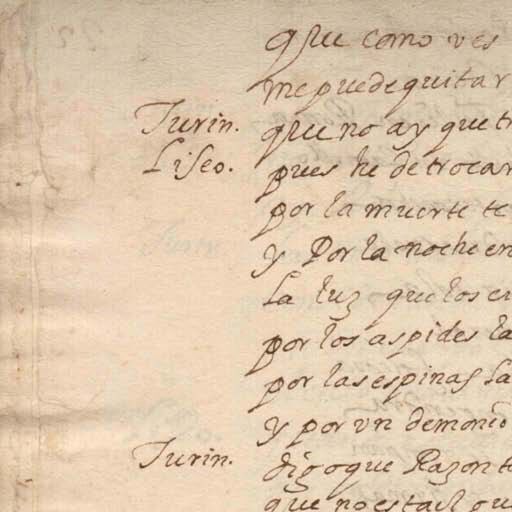 que como ves
me puede quitar
Turin. que no ay que tr
Liseo. pues he de trocar
por la muerte te
y Por la noche en
La luz que los
por los aspides la
por las espinas la
y por vn demonio
Turin. digo que Razon t
que no estas